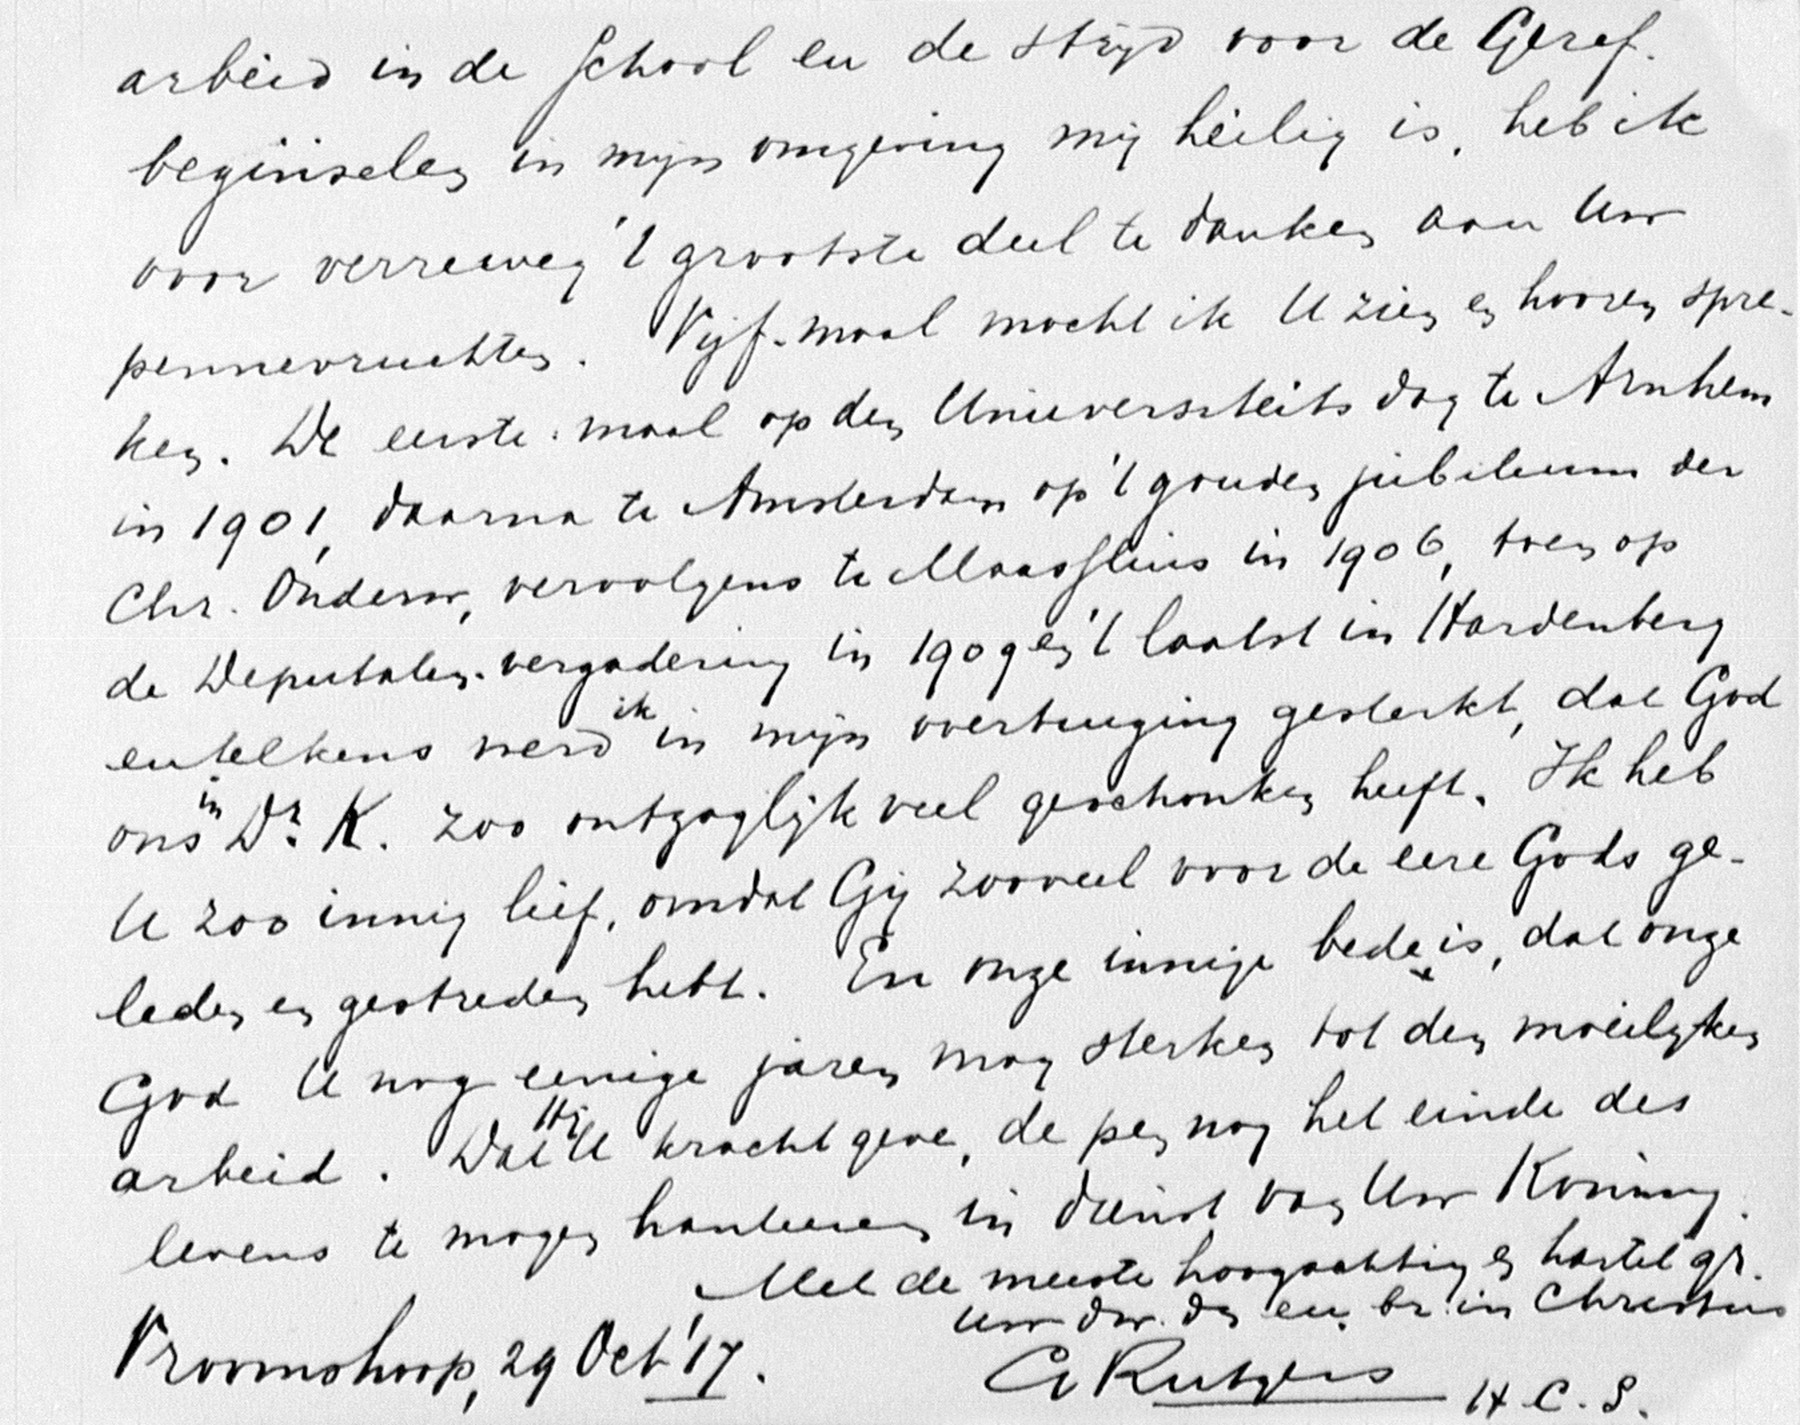 arbeid in de School en de strijd voor de Geref.
beginselen in mijn omgeving mij heilig is, heb ik
voor verreweg 't grootste deel te danken aan Uw
pennevruchten. Vijf-maal mocht ik U zien en hooren spre-
ken. De eerste maal op den Universiteitsdag te Arnhem
in 1901, daarna te Amsterdam op 't gouden jubileum der
Chr. Onderw, vervolgens te Maassluis in 1906, toen op
de Deputaten-vergadering in 1909 en 't laatst in Hardenberg
en telkens werd ik in mijn overtuiging gesterkt, dat God
ons in Dr. K. zoo ontzaglijk veel geschonken heeft. Ik heb
U zoo innig lief, omdat Gij zooveel voor de eere Gods ge-
leden en gestreden hebt. En onze innige bede is, dat onze
God U nog eenige jaren mag sterken tot den moeilijken
arbeid. Dat Hij U kracht geve, de pen nog het einde des
levens te mogen hanteeren in dienst van Uw Koning.
Met de meeste hoogachting en hartel gr.
Uw dw. dn en br. in Christus
Vroomshoop, 29 Oct '17.
G Rutgers H. C. S.